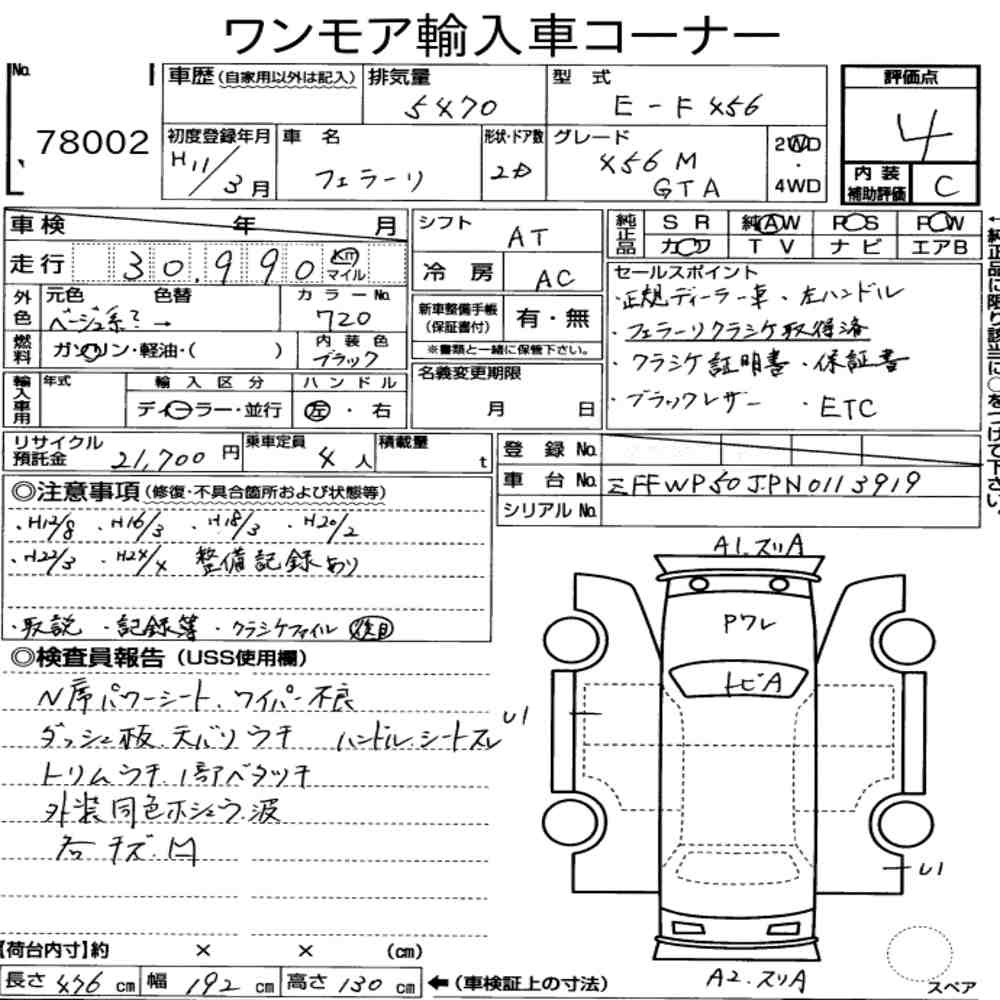 ワンモア輸入車コーナー
No. 78002
車歴（自家用以外は記入） 排気量 5470 型式 E-F456
評価点 4
初度登録年月 H11/3月 車名 フェラーリ 形状・ドア数 2D グレード 456M GTA 2WD・4WD
内装補助評価 C
車検 年 月
シフト AT
純正品 SR 純AW PS PW
カワ TV ナビ エアB
走行 30,990 km マイル
冷房 AC
外色 元色 ベージュ系? 色替 → カラーNo. 720
新車整備手帳（保証書付） 有・無
※書類と一緒に保管下さい。
燃料 ガソリン・軽油・( ) 内装色 ブラック
名義変更期限 月 日
輸入車用 年式 輸入区分 ディーラー・並行 ハンドル 左・右
セールスポイント
・正規ディーラー車 ・左ハンドル
・フェラーリクラシケ取得済
・クラシケ証明書・保証書
・ブラックレザー ・ETC
←純正品に限り該当に○をつけて下さい。
リサイクル預託金 21,700円 乗車定員 4人 積載量 t
登録No.
車台No. ZFFWP50JPN0113919
シリアルNo.
◎注意事項（修復・不具合箇所および状態等）
・H12/8 ・H16/3 ・H18/3 ・H20/2
・H22/3 ・H24/4 整備記録あり
・取説 ・記録簿 ・クラシケファイル 後日
◎検査員報告（USS使用欄）
N席パワーシート、ワイパー不良
ダッシュ板、天バリウキ ハンドル、シートスレ
トリムウキ、1部ベタツキ
外装同色ホシュウ、波
右キズ、凹
A1.スリA
Pワレ
トビA
U1
U1
A2.スリA
スペア
【荷台内寸】約 × × (cm)
長さ 476cm 幅 192cm 高さ 130cm ←（車検証上の寸法）